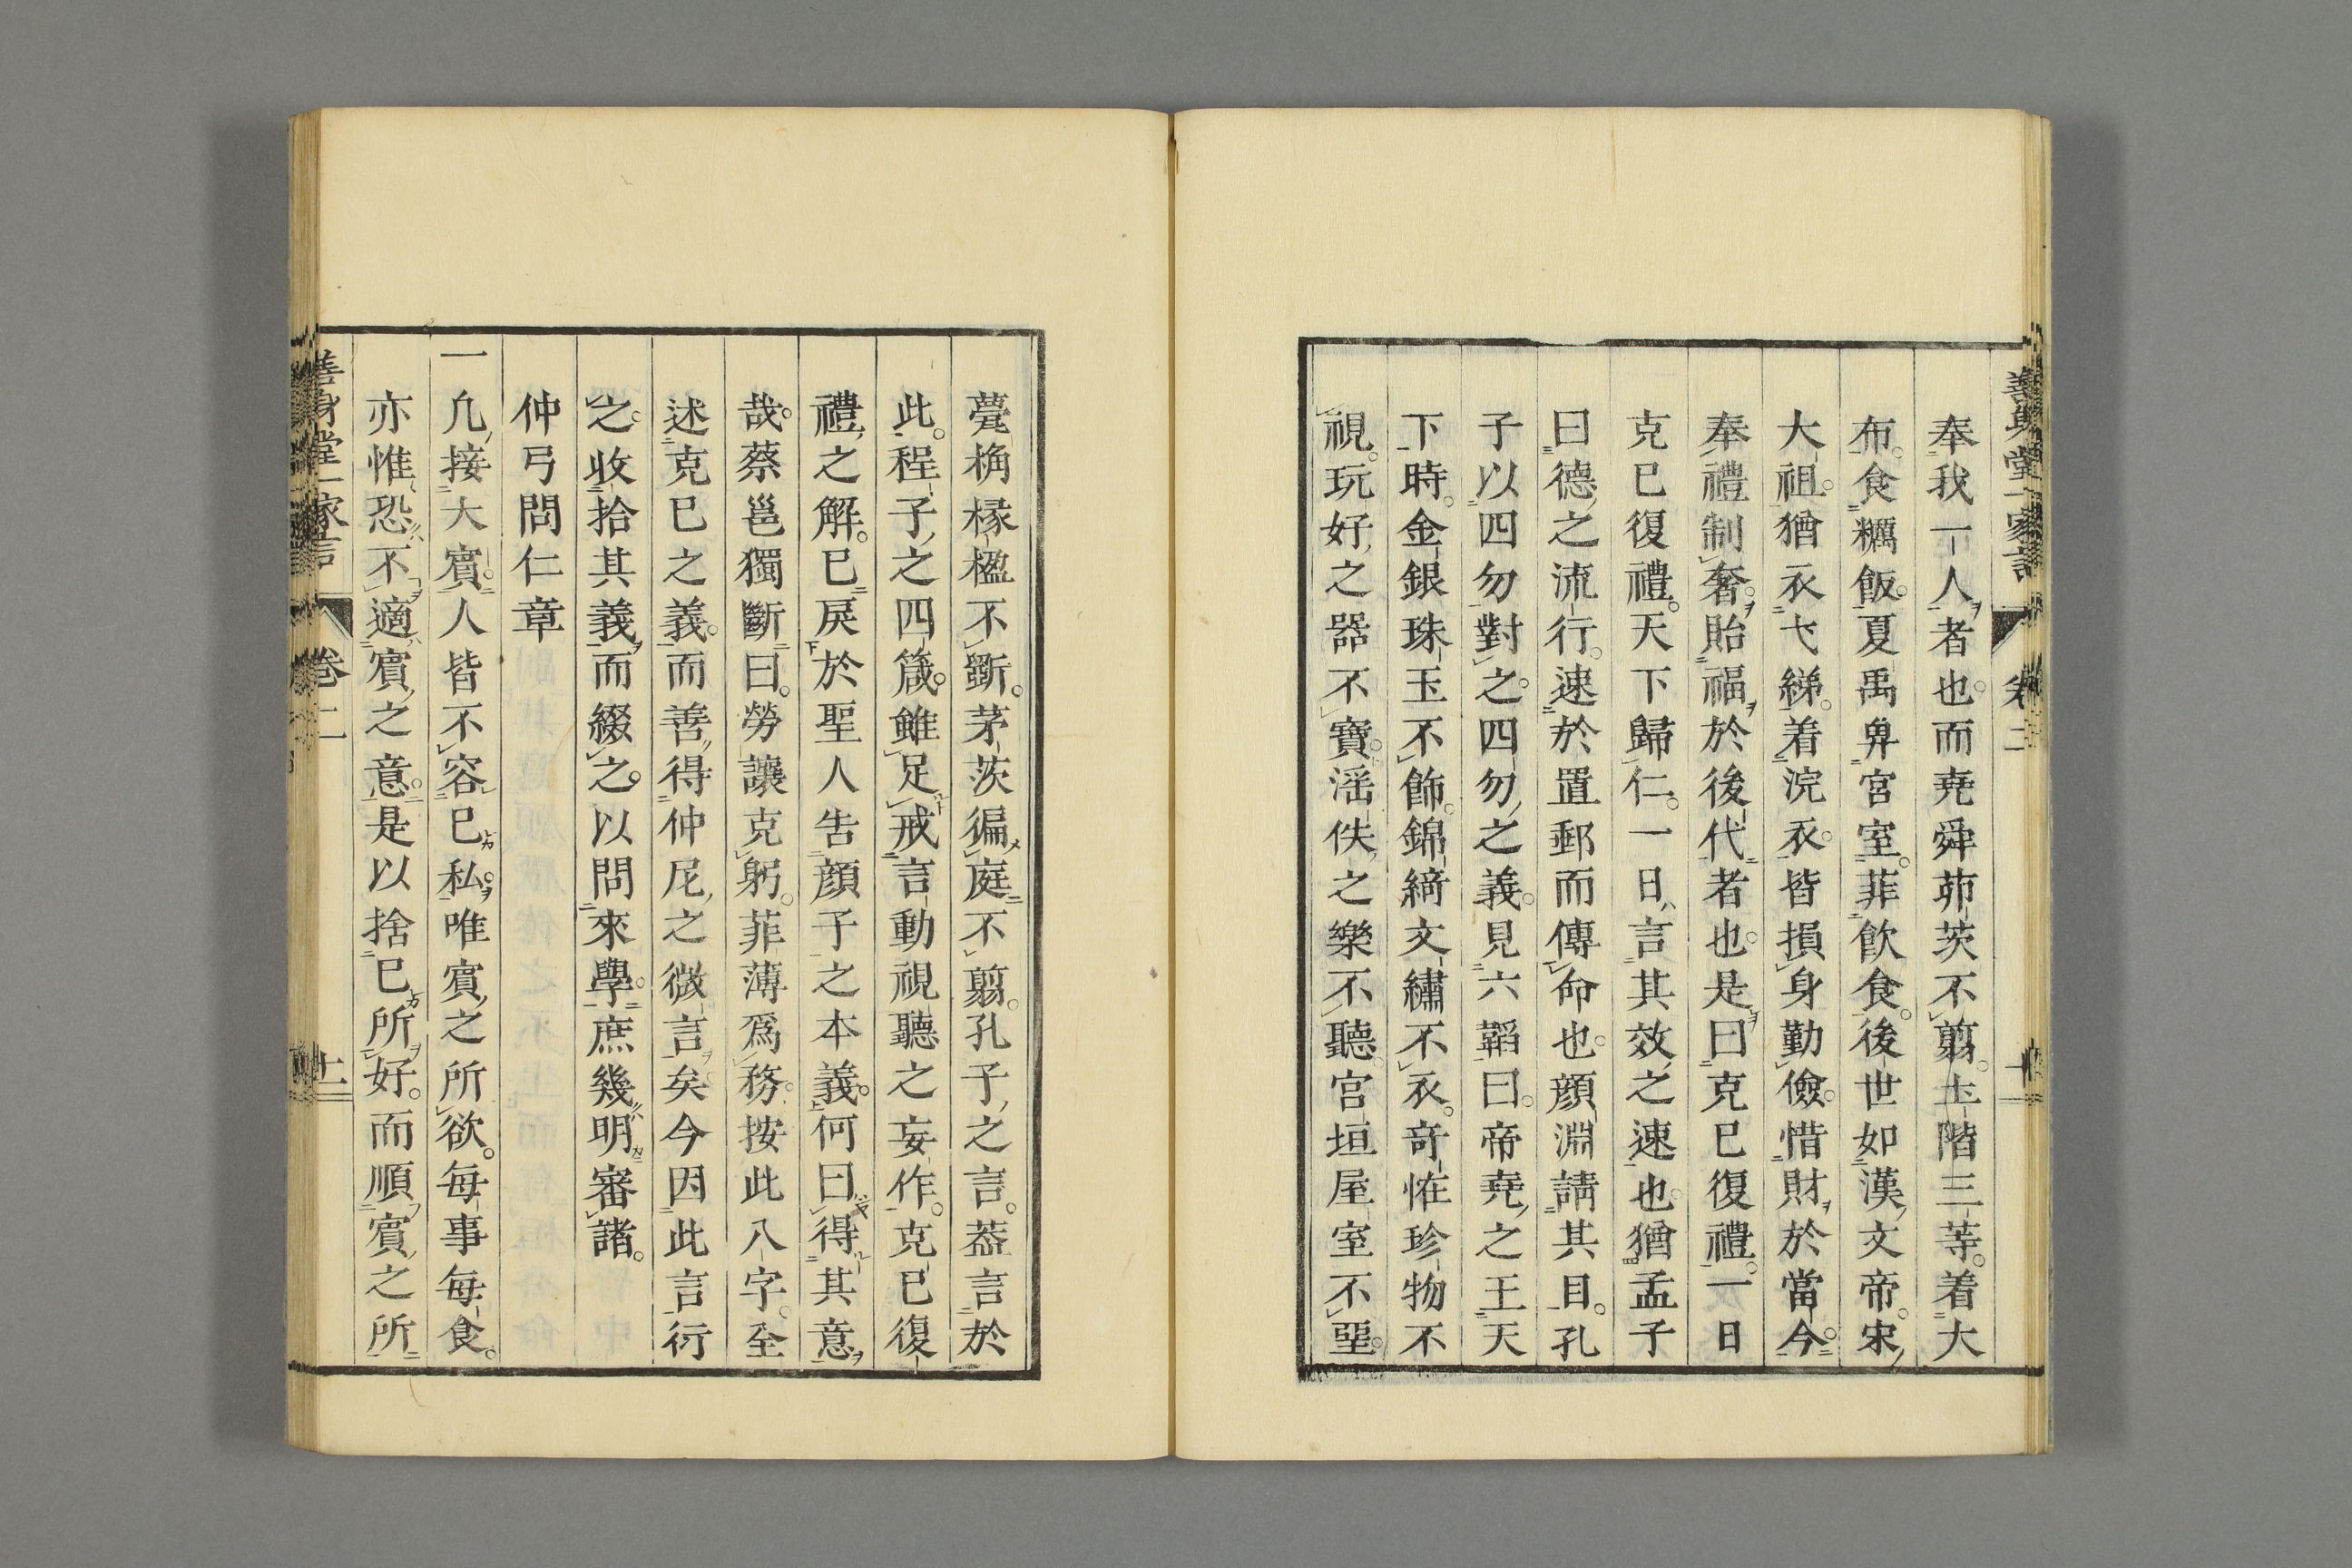 奉我一人者也而堯舜茆茨不翦土階三等着大
布食糲飯夏禹卑宮室菲飲食後世如漢文帝宋
大祖猶衣弋綈着浣衣皆損身勤儉惜財於當今
奉禮制奢貽福於後代者也是曰克已復禮一日
克已復禮天下歸仁一日言其效之速也猶孟子
曰德之流行速於置郵而傳命也顏淵請其目孔
子以四勿對之四勿之義見六韜曰帝堯之王天
下時金銀珠玉不飾錦綺文繡不衣奇恠珍物不
視玩好之器不寶滛佚之樂不聽宫垣屋室不堊
甍桷椽楹不斲茅茨徧庭不翦孔子之言蓋言於
此程子之四箴雖足戒言動視聽之妄作克已復
禮之解已戾於聖人告顏子之本義何曰得其意
哉蔡邕獨斷曰勞讓克躬菲薄爲務按此八字至
述克已之義而善得仲尼之微言矣今因此言衍
之收拾其義而綴之以問來學庶幾明審諸
仲弓問仁章
一凢接大賓人皆不容已私唯賓之所欲每事每食
亦惟恐不適賓之意是以捨已所好而順賓之所
善身堂一家言 卷二 十二